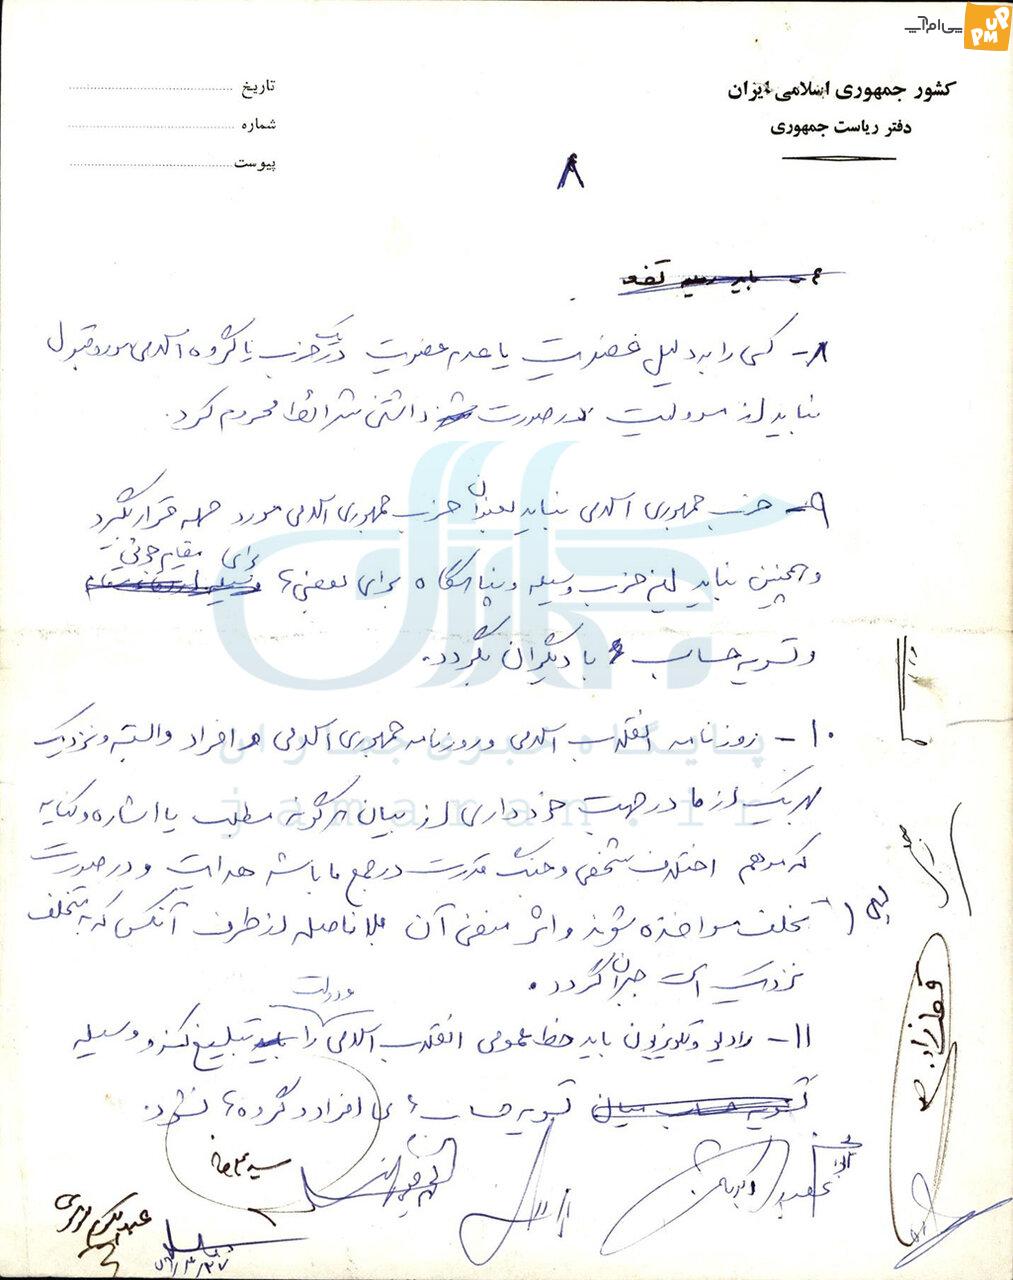 پی‌ام‌آپ
PM UP
کشور جمهوری اسلامی ایران
دفتر ریاست جمهوری
تاریخ
شماره
پیوست
۸
۸- کسی را به دلیل عضویت یا عدم عضویت در یک حزب یا گروه اسلامی مورد قبول
نباید از مسولیت در صورت داشتن شرائط محروم کرد.
۹- حزب جمهوری اسلامی نباید بعنوان حزب جمهوری اسلامی مورد حمله قرار بگیرد
و همچنین نباید این حزب وسیله و پناهگاه برای بعضی‌ها برای مقام جوئی
و تسویه حساب با دیگران بگردد.
۱۰- روزنامه انقلاب اسلامی و روزنامه جمهوری اسلامی و افراد وابسته و نزدیک
بهر یک از ما در جهت خودداری از بیان هرگونه مطلب یا اشاره و کنایه
که موهم اختلاف شخصی و جنگ قدرت در جمع ما باشد هدایت و در صورت
تخلف مواخذه شوند و اثر منفی آن بلافاصله از طرف آنکس که به متخلف
نزدیک است جبران گردد.
۱۱- رادیو و تلویزیون باید خط عمومی انقلاب اسلامی و دولت را تبلیغ کند و وسیله
تسویه حساب‌های افراد و گروه‌ها نشود.
جماران
پایگاه خبری جماران
jamaran.ir